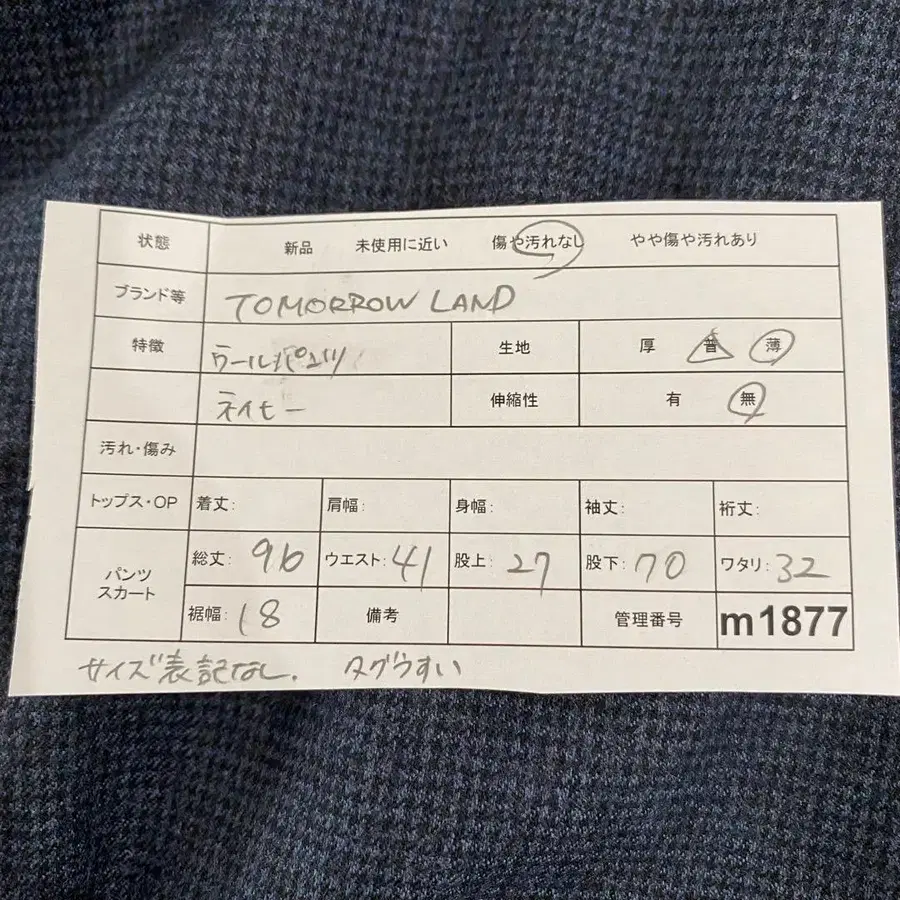 状態 新品 未使用に近い 傷や汚れなし やや傷や汚れあり
ブランド等 TOMORROW LAND
特徴 ウールパンツ 生地 厚 普 薄
ネイビー 伸縮性 有 無
汚れ・傷み
トップス・OP 着丈: 肩幅: 身幅: 袖丈: 裄丈:
パンツ スカート 総丈: 96 ウエスト: 41 股上: 27 股下: 70 ワタリ: 32
裾幅: 18 備考 管理番号 m1877
サイズ表記なし. タグうすい